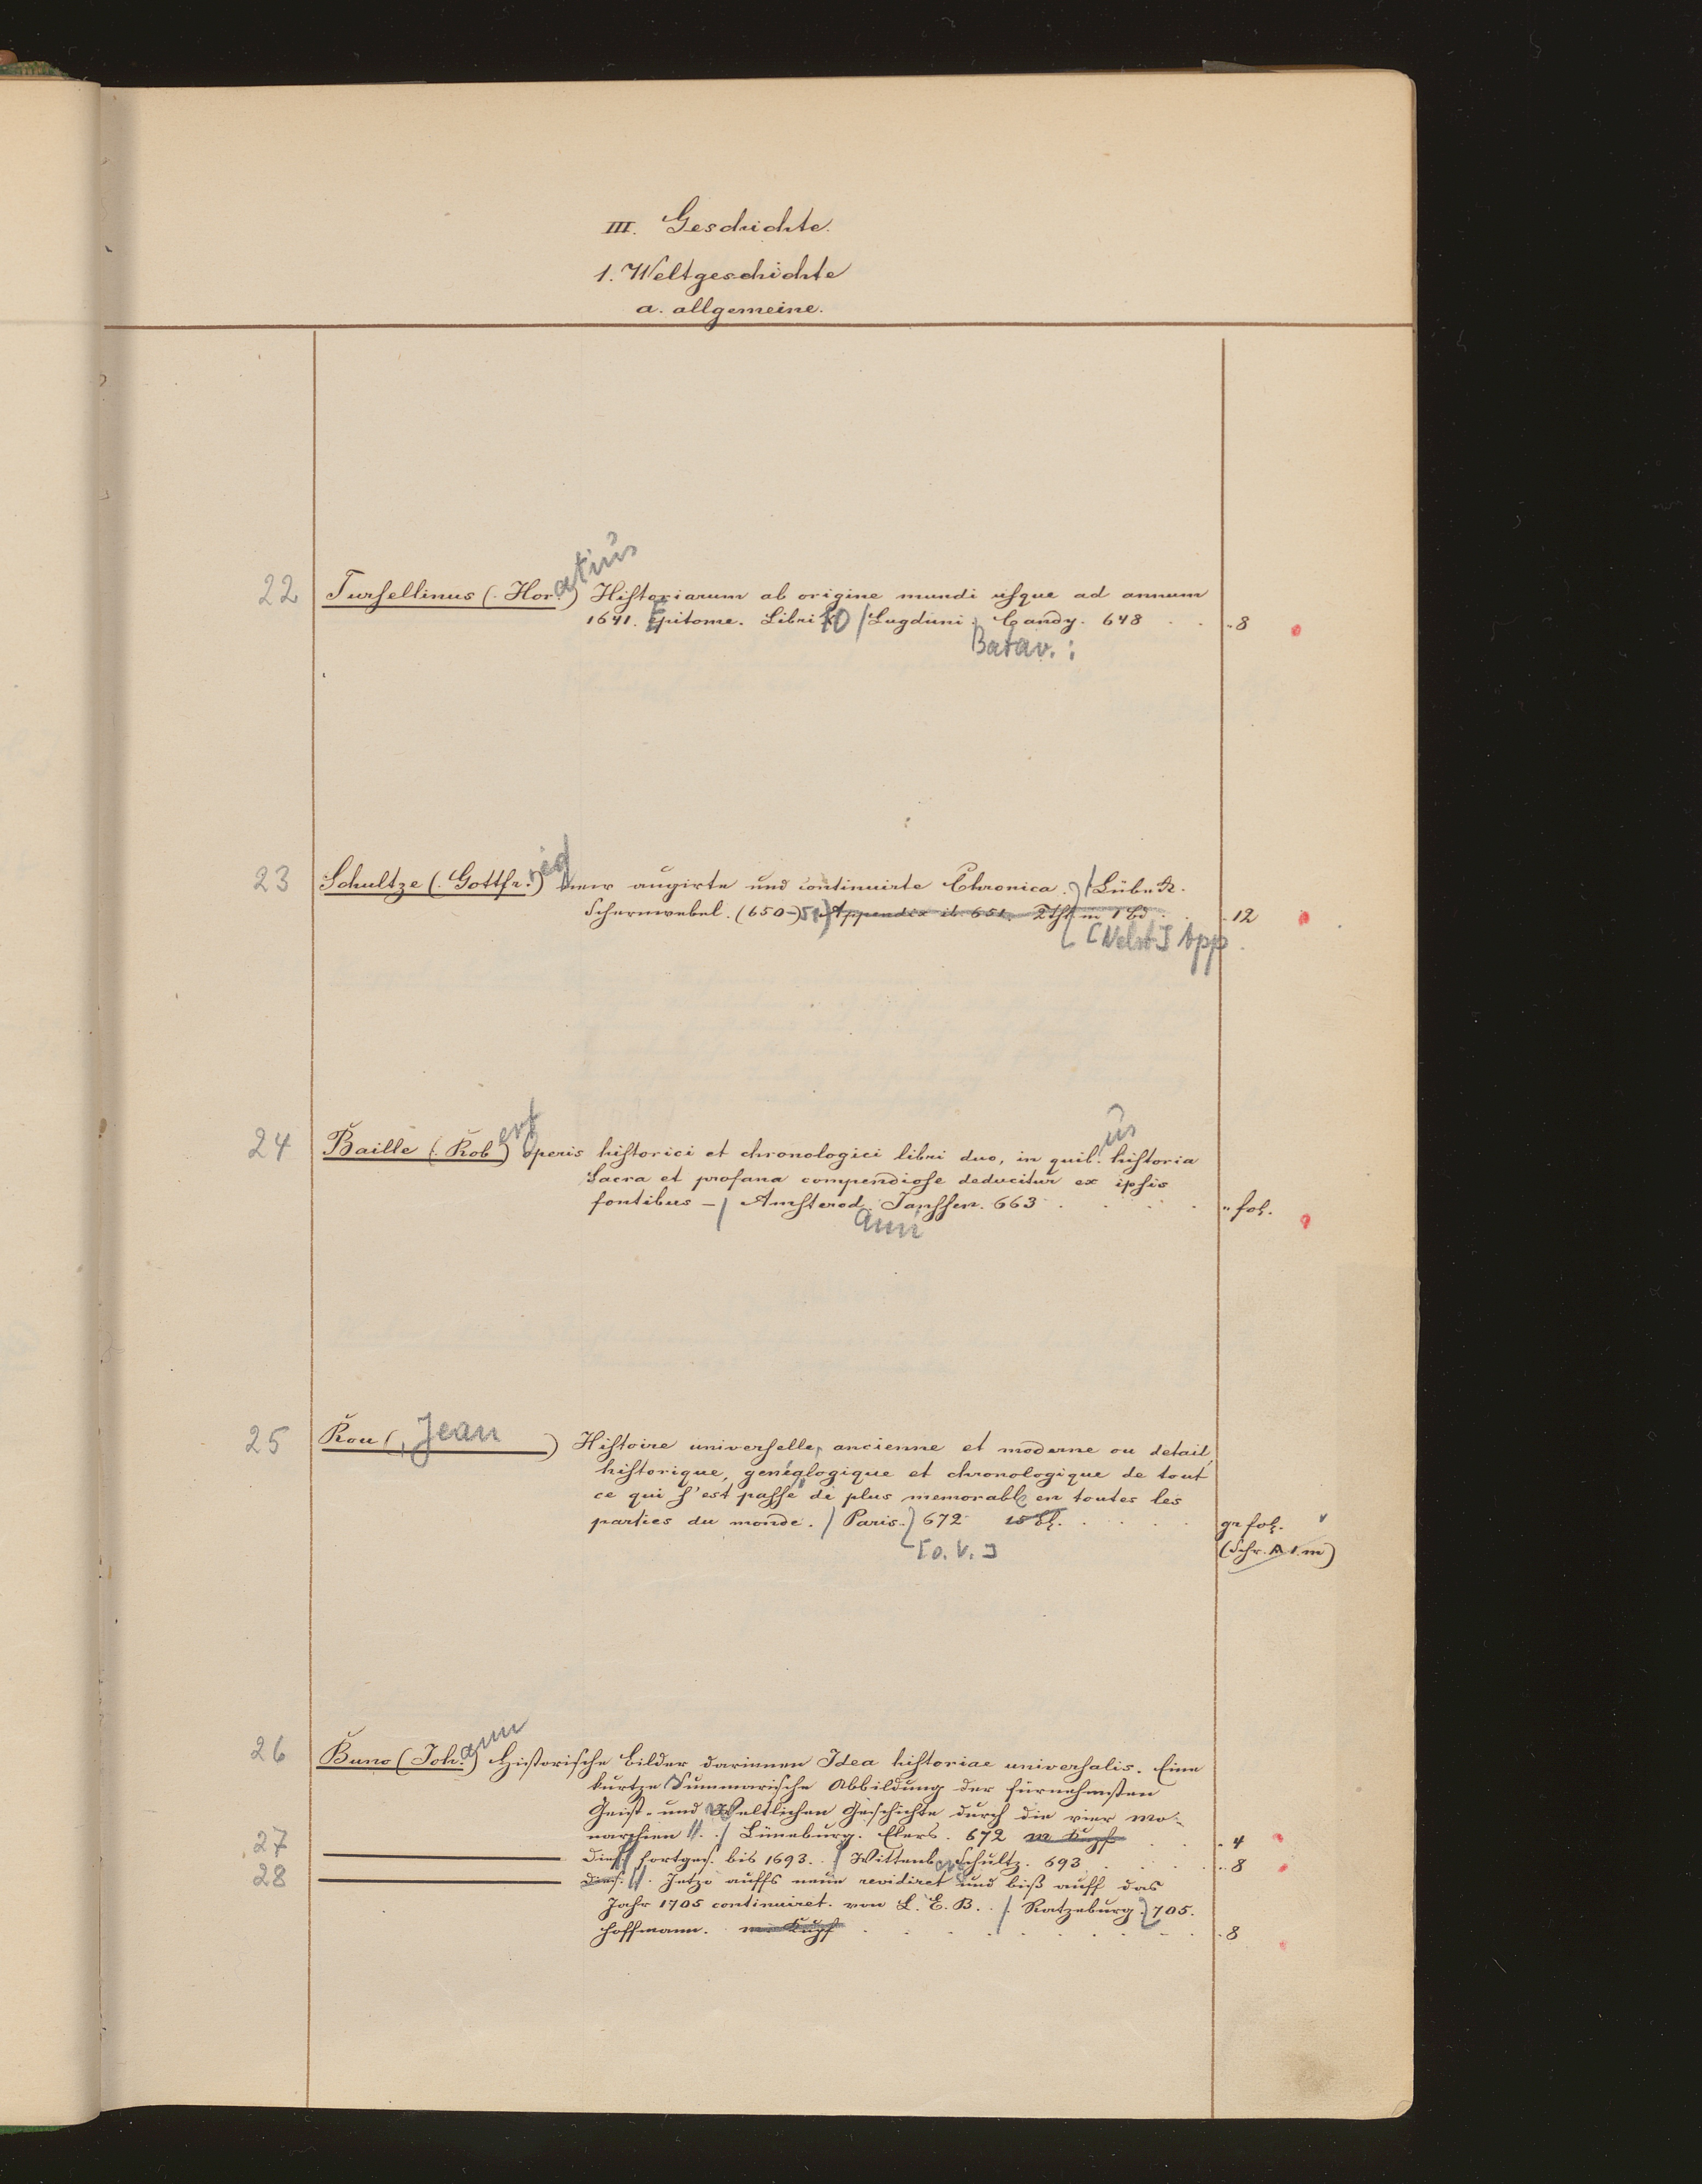 III. Geschichte.
1. Weltgeschichte
a. allgemeine.
22 Tursellinus (Horatius) Historiarum ab origine mundi usque ad annum
1641. Epitome. Libri 10 / Lugduni. Candy. 648 . . . 8
Batav. :
23 Schultze (Gottfried) neur augirte und continuirte Chronica. / Lübeck.
Schernwebel. (650-)51 Appendix ib. 651. 2 Thl in 1 Bd . . 12
[Nebst] App.
24 Baille (Robert) Operis historici et chronologici libri duo, in quibus historia
Sacra et profana compendiose deducitur ex ipsis
fontibus – / Amsterod. Janssen. 663 . . . . . " fol.
ami
25 Rou (Jean) Histoire universelle, ancienne et moderne ou detail
historique, genéalogique et chronologique de tout
ce qui s'est passé de plus memorable en toutes les
parties du monde. / Paris. 672 15 Bl. . . . . gr fol.
[o. V.] (Schr. A 1. m)
26 Buno (Johann) Historische Bilder darinnen Idea historiae universalis. Eine
kurtze Summarische Abbildung der fürnehmsten
Geist- und Weltlichen Geschichte durch die vier Mo-
narchien . / Lüneburg. Elers. 672 m Kupf . . 4
27 Dies. fortges. bis 1693. / Wittenb Schultz. 693 . . . . 8
28 Dies. Jetzo auffs neue revidiret und biß auff das
Jahr 1705 continuiret. von L. E. B. . / Ratzeburg. 705.
Hoffmann. m Kupf . . . . . . . 8